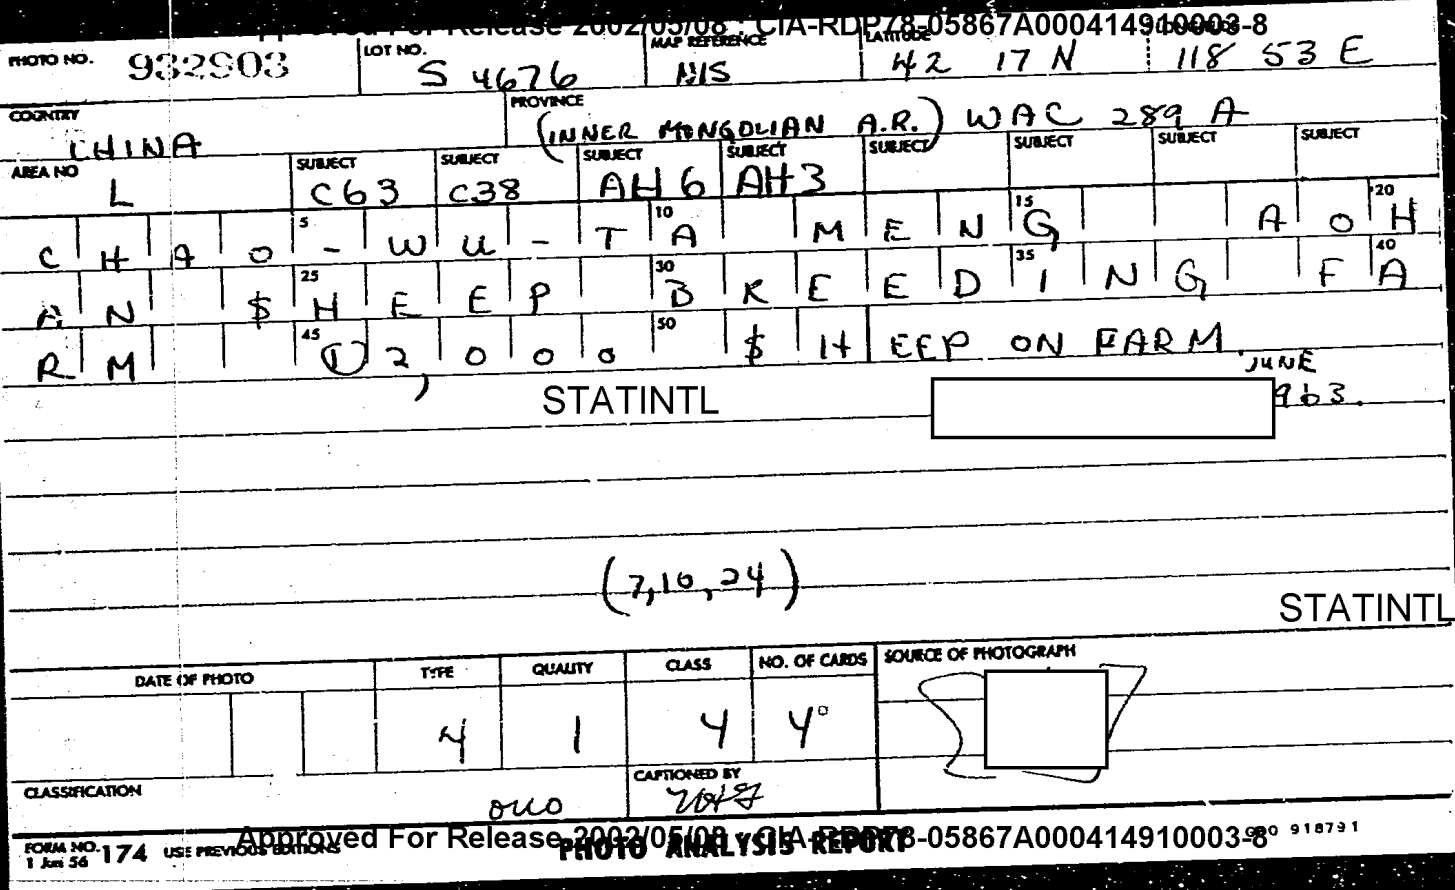 Approved For Release 2002/05/08 : CIA-RDP78-05867A000414910003-8
PHOTO NO. 932903 LOT NO. S 4676 MAP REFERENCE NIS LATITUDE 42 17 N 118 53 E
COUNTRY CHINA PROVINCE (INNER MONGOLIAN A.R.) WAC 289 A
AREA NO L SUBJECT C63 SUBJECT C38 SUBJECT AH6 SUBJECT AH3 SUBJECT SUBJECT SUBJECT SUBJECT
5 10 15 20
CHAO-WU-TA MENG AOH
25 30 35 40
AN $HEEP BREEDING FA
45 50
RM 12,000 $HEEP ON FARM.
JUNE
STATINTL 963.
(7,10,24)
STATINTL
DATE OF PHOTO TYPE QUALITY CLASS NO. OF CARDS SOURCE OF PHOTOGRAPH
4 1 4 4°
CLASSIFICATION OUO CAPTIONED BY
FORM NO. 174 USE PREVIOUS EDITIONS PHOTO ANALYSIS REPORT 918791
1 Jun 56
Approved For Release 2002/05/08 : CIA-RDP78-05867A000414910003-8